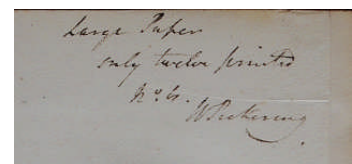 Large Paper
only twelve printed
No 6.
W Pickering